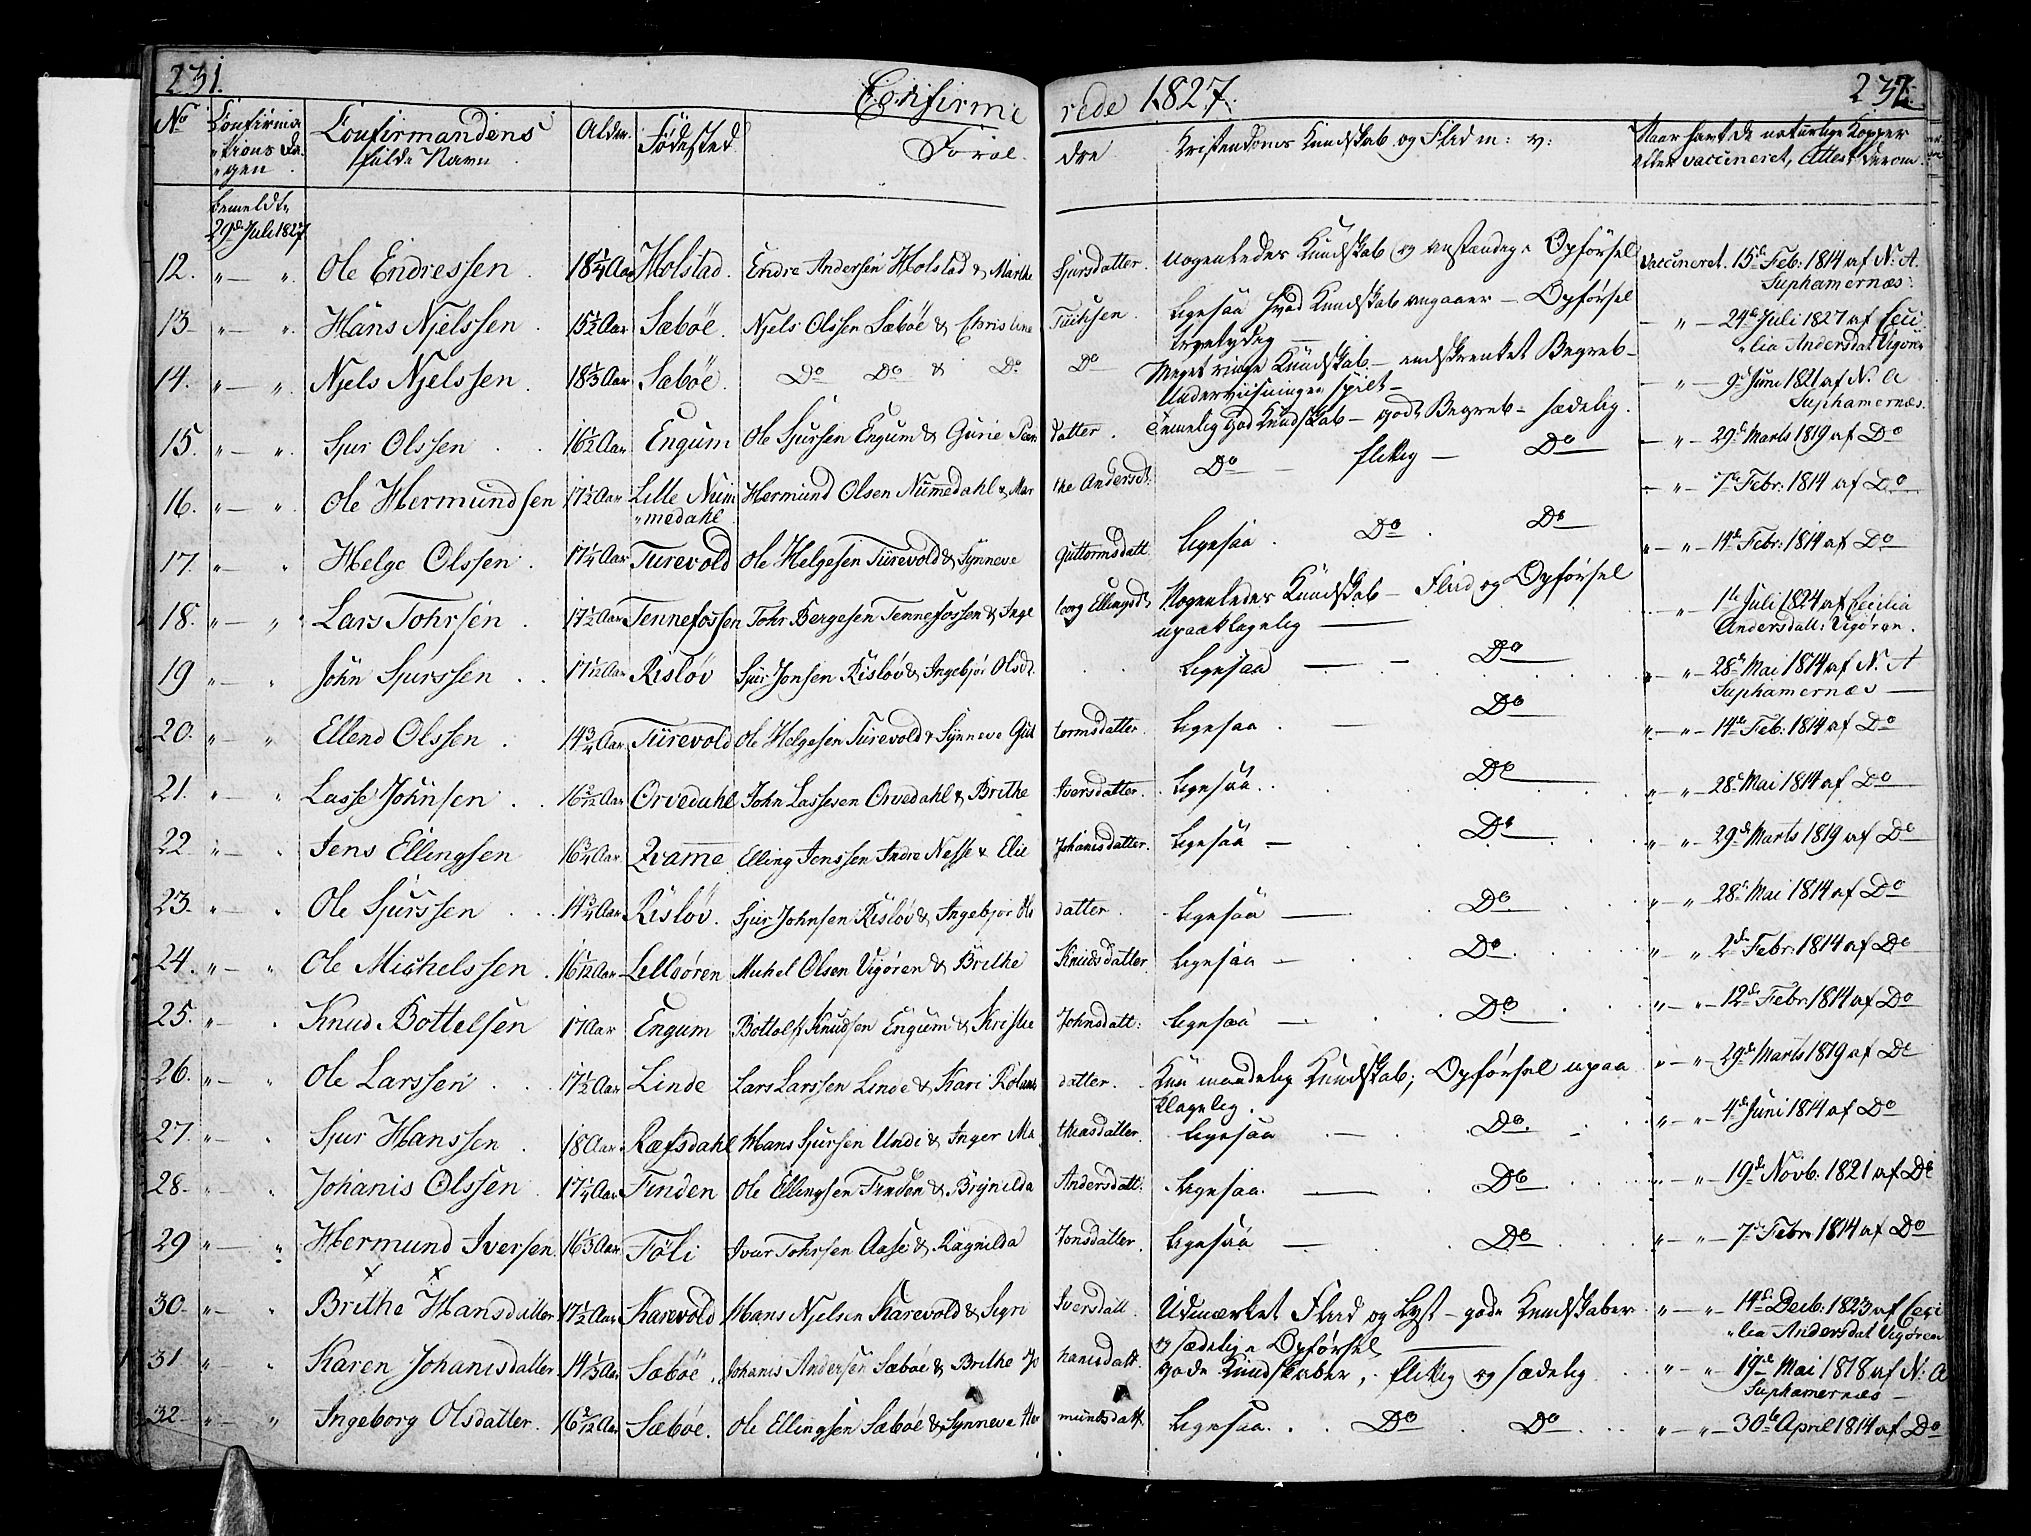 231. Confirme rede 1827. 232.
No Confirma Confirmandens Alder. Fødested Foræl dre Kristendoms Kundskab og Flid m: v: Naar havt de naturlige Kopper
tions Da fulde Navn eller vaccineret, Attest derom.
gen
bemeldte
29de Juli 1827
12. " — " Ole Endressen 18 1/4 Aar Holstad. Endre Andersen Holstad & Marthe Sjursdatter. Nogenledes Kundskab og anstændige Opførsel vaccineret. 15de Feb: 1814 af N: A.
Suphamernæs:
13 " — " Hans Njelssen 15 1/2 Aar Sæböe. Njels Olssen Sæböe & Christine Tuchsen. Ligesaa hvad Kundskab angaaer — Opførsel — " — 24de Juli 1827 af Ceci
lia Andersdat Vigøren
14. " — " Njels Njelssen 18 1/3 Aar Sæböe. Do Do & Do Do Meget ringe Kundskab — indskrænket Begreb — — " — 9de Juni 1821 af N. A
Underviisningen spilt — Suphamernæs.
15. " — " Sjur Olssen 16 1/2 Aar Engum Ole Sjursen Engum & Gurie datter. Temmelig god Kundskab — godt Begreb — sædelig. — " — 29de Marts 1819 af Do
16. " — " Ole Hermundssen 17 1/2 Aar Lille Num Hermund Olsen Nummedahl & Mar the Andersdt: Do — flittig — Do — " — 7de Febr: 1814 af Do
medahl
17. " — " Helge Olssen 17 1/4 Aar Turevold Ole Helgesen Türevold & Synneve Guttormsdatt. Ligesaa. Do Do " — " — 14de Febr: 1814 af Do
18. " — " Lars Tohrsen 17 1/2 Aar Tennefossen Tohr Bergesen Tennefossen & Inge borg Ellingsdt Nogenledes Kundskab — Flid og Opførsel " 1te Juli 1824 af Cecilia
upaaklagelig — Andersdatt: Vigøren.
19 " — " John Sjurssen 17 1/12 Aar Risløv Sjur Jonsen Risløv & Ingebjør Olsdt. Ligesaa — — Do " — " — 28de Mai 1814 af N. A
Suphamernæs —
20. " — " Ellend Olssen 14 3/4 Aar Türevold Ole Helgesen Türevold & Synneve Gut tormsdatter. Ligesaa. — Do " — " — 14de Feb: 1814 af Do
21. " — " Lasse Johnsen Aar Orvedahl John Lassesen Orvedahl & Brithe Iversdatter. Ligesaa. Do " — " — 28de Mai 1814 af Do
22 " — " Jens Ellingsen 16 3/4 Aar Qvamme Elling Jenssen Indre Nesse & Elie Johanisdatter. Ligesaa — Do " — " — 29de Marts 1819 af Do
23. " — " Ole Sjurssen 14 3/4 Aar Risløv. Sjur Johnsen Risløv & Ingebjør Ols datter. Ligesaa — Do " — " — 28de Mai 1814 af Do
24. " — " Ole Michelssen 16 1/12 Aar Lellsören Michel Olsen Vigøren & Brithe Knudsdatter. Ligesaa — Do " — " — 2de Febr: 1814 af Do
25. " — " Knud Bottelsen 17 Aar Engum Bottolf Knudsen Engum & Kristie Johnsdatt: Ligesaa — Do " — " — 12de Febr: 1814 af Do
26. " — " Ole Larssen 17 1/2 Aar Linde Lars Larssen Linde & Kari datter. Kun maadelig Kundskab; Opførsel upaa " — " — 29de Marts 1819 af Do
klagelig.
27. " — " Sjur Hanssen 18 Aar Ræfsdahl Hans Sjursen Unde & Inger Ma thiasdatter. Ligesaa — Do " — " — 4de Juni 1814 af Do
28. " — " Johanis Olssen 17 1/4 Aar Finden Ole Ellingsen Finden & Brynilda Andersdatt: Ligesaa. — Do " — " — 19de Novb: 1821 af Do
29 " — " Hermund Iversen 16 1/3 Aar Föli Ivar Tohrsen Aase & Ragnilda Jonsdatter. Ligesaa — Do " — " — 7de Febr. 1814 af Do
30. " — " Brithe Hansdatter 17 1/2 Aar Karevold Hans Njelsen Karevold & Sigri Iversdatt. Udmærket Flid og Lyst — gode Kundskaber " — " — 14de Decb: 1823 af Ceci
og sædelige Opførsel — lia Andersdat Vigøren
31 " — " Karen Johanisdatter 14 1/3 Aar Sæböe, Johanis Andersen Sæböe & Brithe Jo hanisdatt. Gode Kundskaber, flittig og sædelig " — " — 19de Mai 1818 af N: A
Suphamernæs —
32 " — " Ingeborg Olsdatter. 16 2/12 Aar Sæböe. Ole Ellingsen Sæböe & Synneve Her mundsdatt. Ligesaa. Do Do " — " — 30te April 1814 af Do